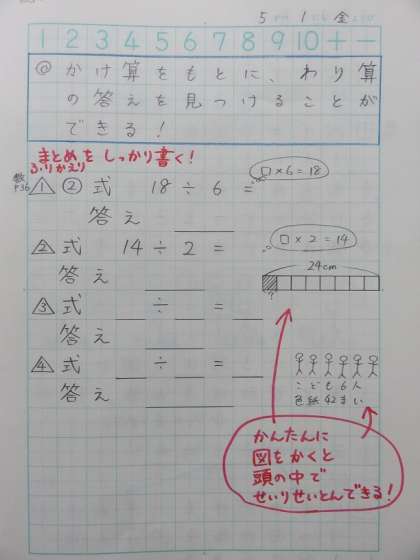 5 1 金
1 2 3 4 5 6 7 8 9 10 + −
◎ かけ算をもとに、わり算
の答えを見つけることが
できる!
まとめをしっかり書く!
ふりかえり
教P36
△1 ② 式 18 ÷ 6 =
□×6=18
答え
△2 式 14 ÷ 2 =
□×2=14
答え
24cm
?
△3 式 ÷ =
答え
△4 式 ÷ =
こども6人
答え
色紙42まい
かんたんに
図をかくと
頭の中で
せいりせいとんできる!